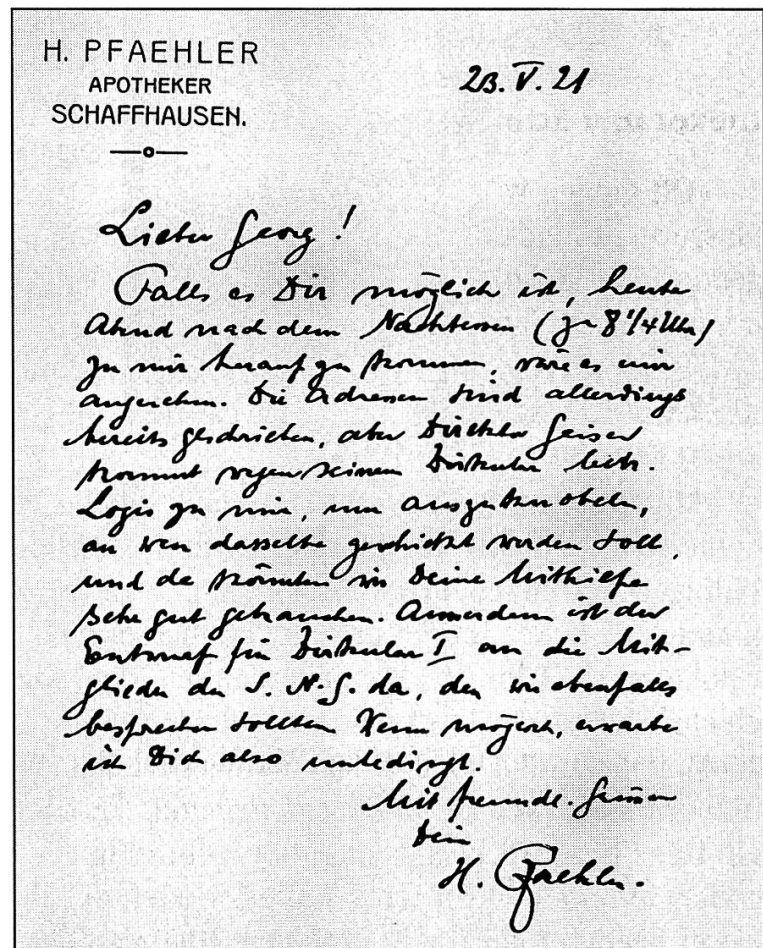 H. PFAEHLER
APOTHEKER
SCHAFFHAUSEN.
23. V. 21
Lieber Georg!
Falls es Dir möglich ist, heute
Abend nach dem Nachtessen (zu 8 1/4 Uhr)
zu mir herauf zu kommen, wäre es mir
angenehm. Die Adressen sind allerdings
bereits geschrieben, aber Direktor Geiser
kommt wegen seinem Zirkular betr.
Logis zu mir, um auszuknobeln,
an wen dasselbe geschickt werden soll,
und da könnten wir Deine Mithiefe
sehr gut gebrauchen. Ausserdem ist der
Entwurf für Zirkular I an die Mit-
glieder der S. N. G. da, den wir ebenfalls
besprechen sollten. Wenn möglich, erwarte
ich Dich also unbedingt.
Mit freundl. Grüssen
Dein
H. Pfaehler.